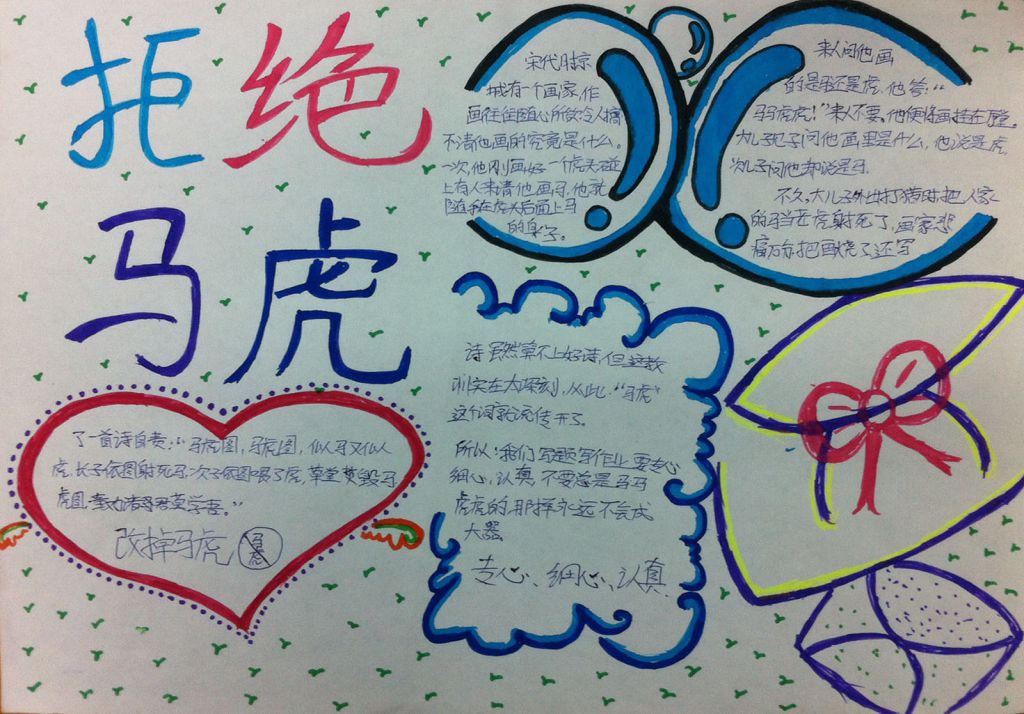 拒绝
马虎
宋代时京
城有一个画家，作
画往往随心所欲令人搞
不清他画的究竟是什么。
一次，他刚画好一个虎头碰
上有人来请他画马，他就
随手在虎头后面上马
的身子。
来人问他画
的是马还是虎，他答：“
马马虎虎！”来人不要，他便将画挂在厅堂。
大儿子问他画里是什么，他说是虎，
次儿子问他却说是马。
不久，大儿子外出打猎时，把人家
的马当老虎射死了，画家悲
痛万分，把画烧了还写
了一首诗自责：“马虎图，马虎图，似马又似
虎，长子依图射死马，次子依图喂了虎，草堂焚毁马
虎图，奉劝诸君莫学吾。”
改掉马虎 马虎
诗虽然算不上好诗，但这教
训实在太深刻，从此，“马虎”
这个词就流传开了。
所以：我们写题写作业要专心
细心，认真，不要总是马马
虎虎的，那样永远不会成
大器。
专心、细心、认真